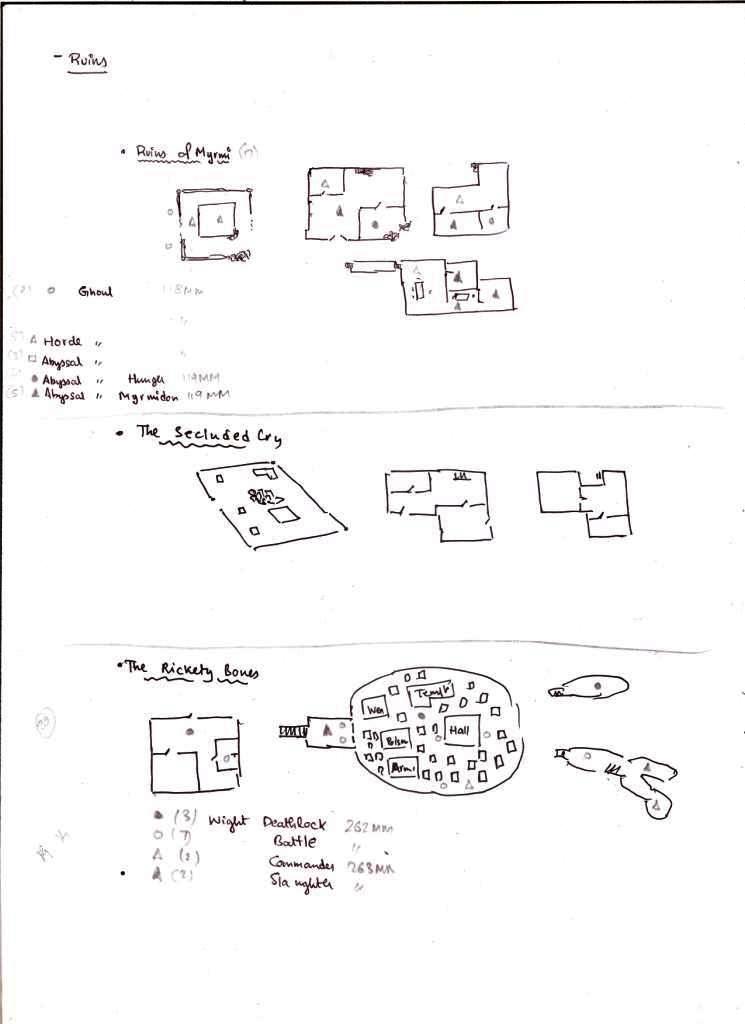 - Ruins
• Ruins of Myrmi (17)
Ghoul 118MM
"
Horde " "
Abyssal "
Abyssal " Hunger 119MM
(5) Abyssal " Myrmidon 119MM
• The Secluded Cry
• The Rickety Bones
Temple
Wea
Hall
Blsm
Armr
(3) Wight Deathlock 262MM
(7) Battle "
(2) Commander 263MM
• (2) Slaughter "